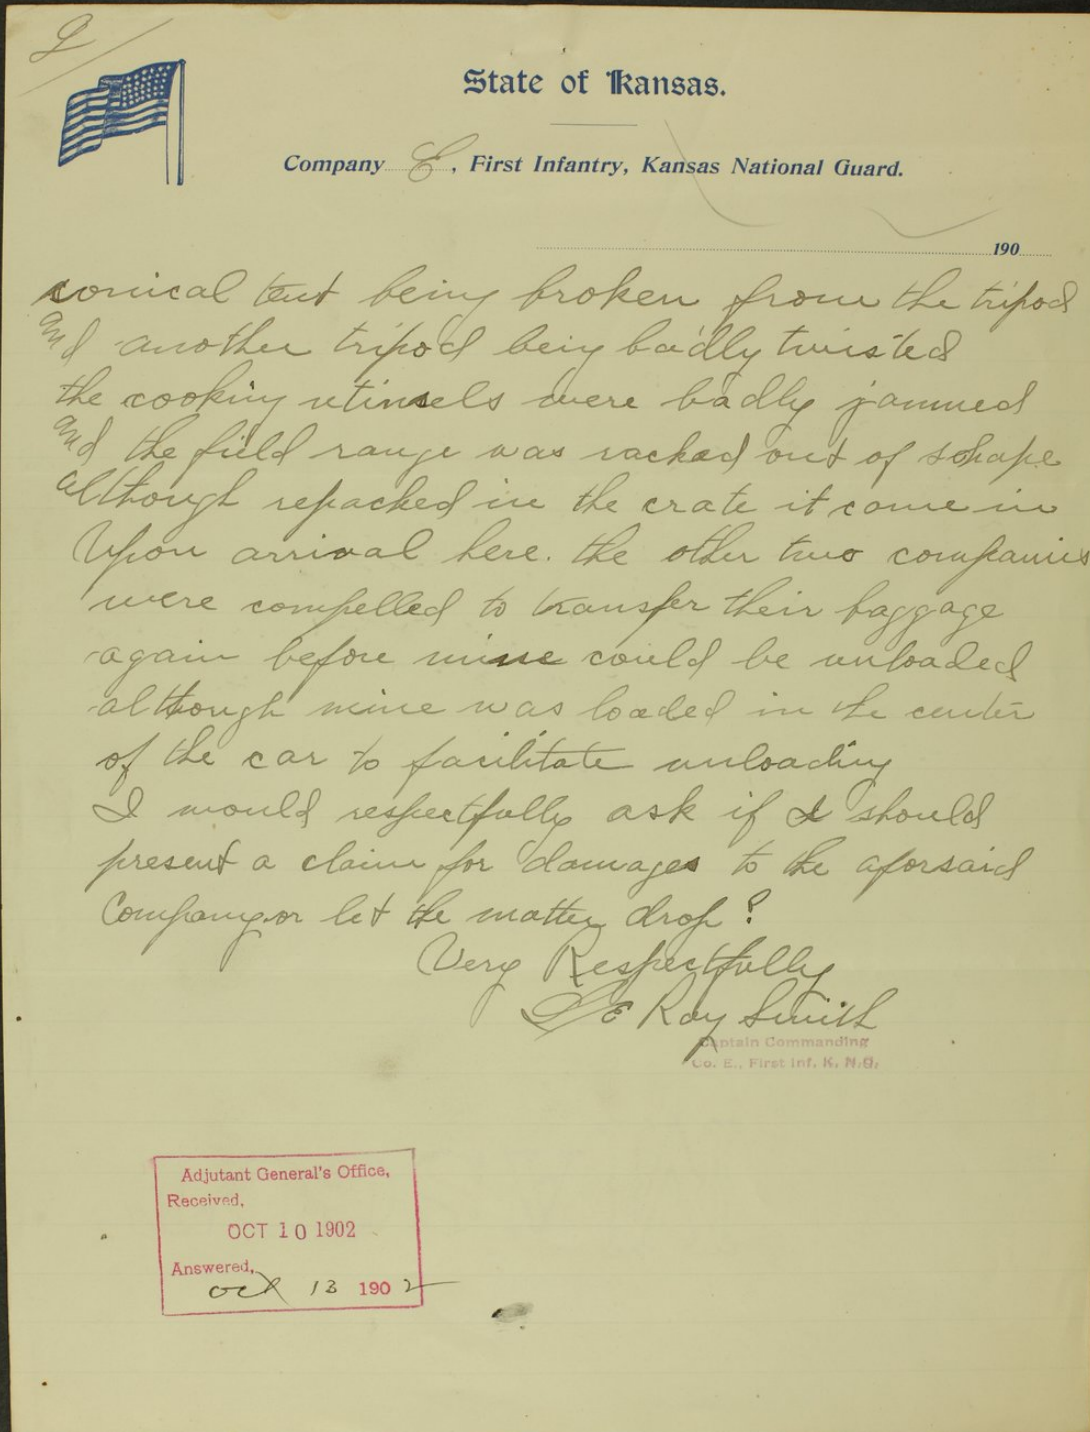 2
State of Kansas.
Company E, First Infantry, Kansas National Guard.
190
conical tent being broken from the tripod
and another tripod being badly twisted
the cooking utinsels were badly jammed
and the field range was racked out of shape
although repacked in the crate it came in
Upon arrival here. the other two companies
were compelled to transfer their baggage
again before mine could be unloaded
although mine was loaded in the center
of the car to facilitate unloading
I would respectfully ask if I should
present a claim for damages to the aforsaid
Company or let the matter drop?
Very Respectfully
Roy Smith
Captain Commanding
Co. E., First Inf. K. N.G.
Adjutant General's Office,
Received,
OCT 10 1902
Answered,
Oct 13 1902